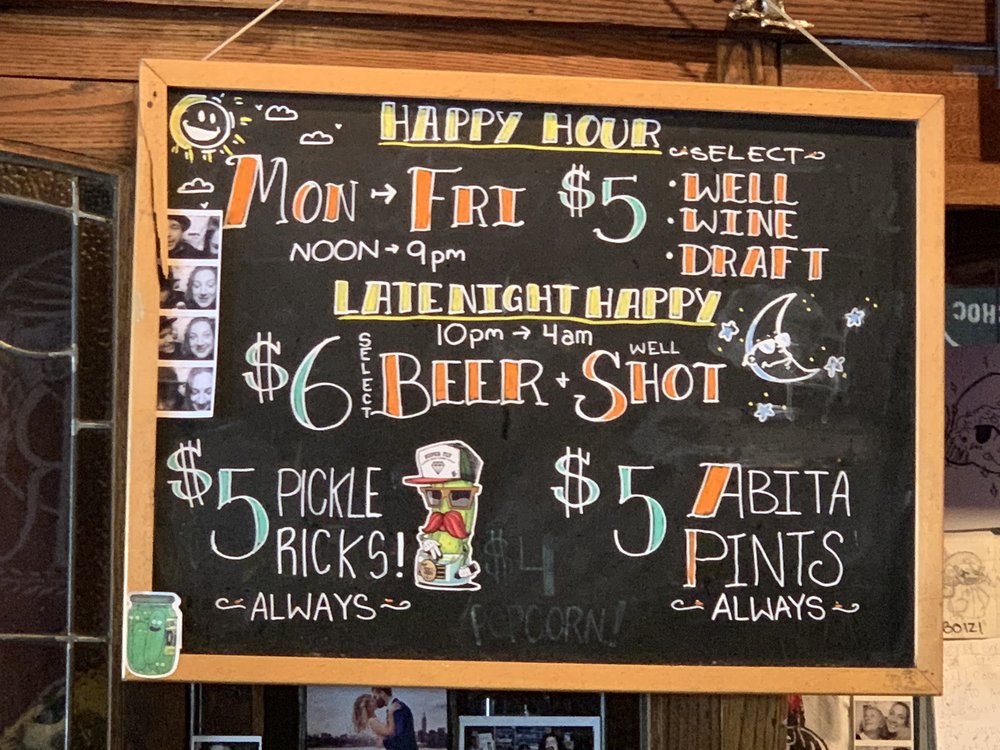 HAPPY HOUR
MON → FRI
NOON → 9pm
$5
~SELECT~
• WELL
• WINE
• DRAFT
LATE NIGHT HAPPY
10pm → 4am
$6 SELECT BEER + WELL SHOT
$5 PICKLE
RICKS!
~ALWAYS~
$5 ABITA
PINTS
~ALWAYS~
$4
POPCORN!